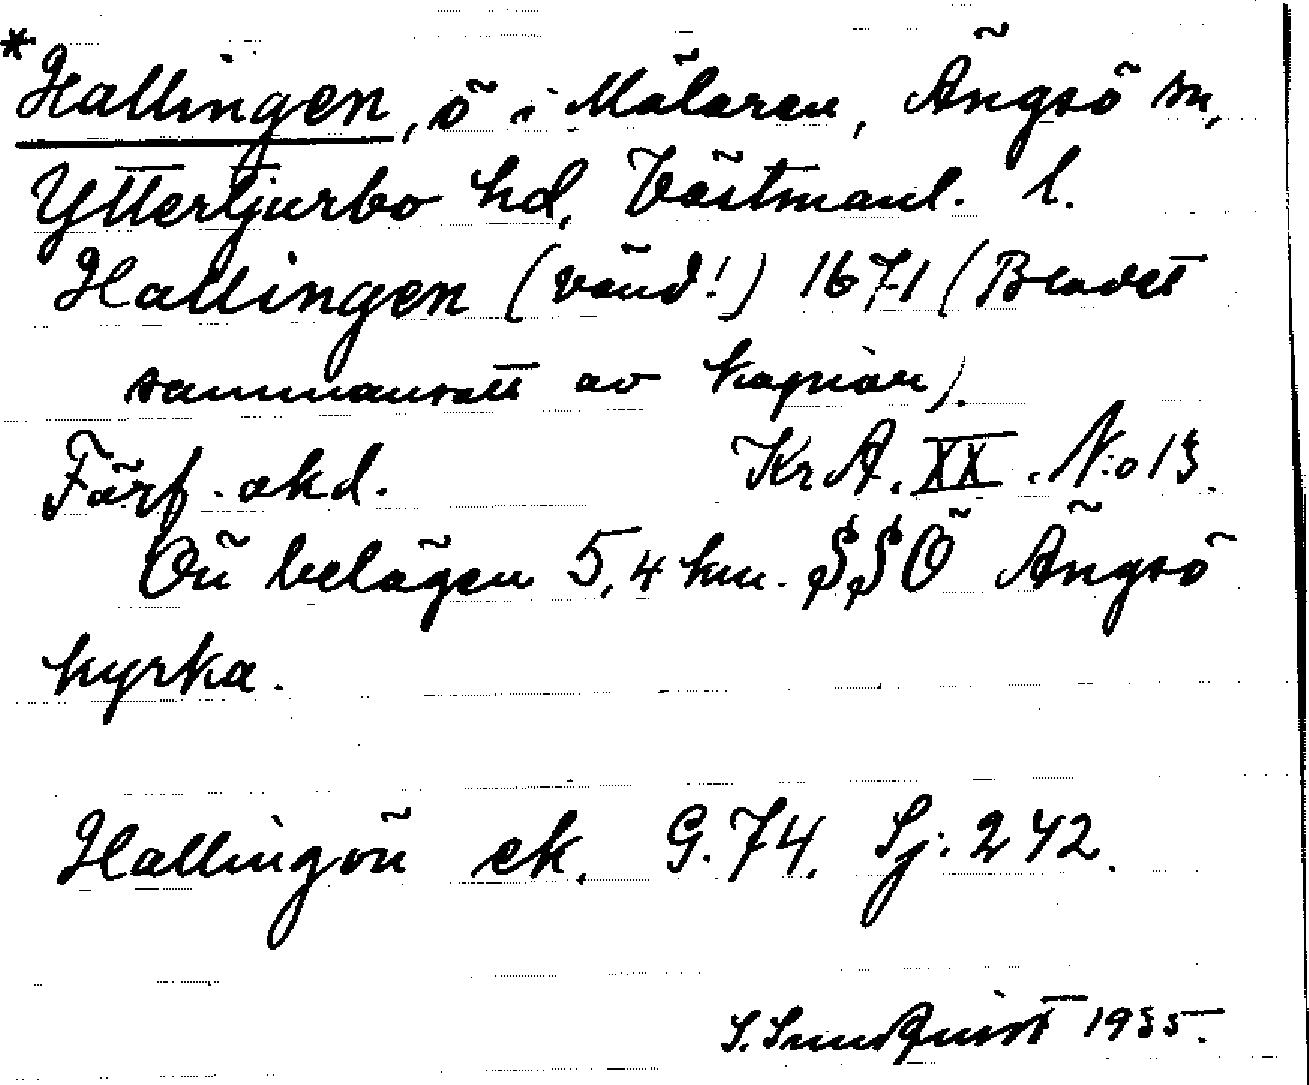 *Hallingen, ö i Mälaren, Ängsö sn,
Yttertjurbo hd, Västmanl. l.
Hallingen (vänd!) 1671 (Bladet
sammansatt av kopior).
Förf. okd. KrA. XX. N:o 13.
Ön belägen 5,4 km. SSÖ Ängsö
kyrka.
Hallingön ek. G.74. Sj: 242.
S. Sundquist 1935.